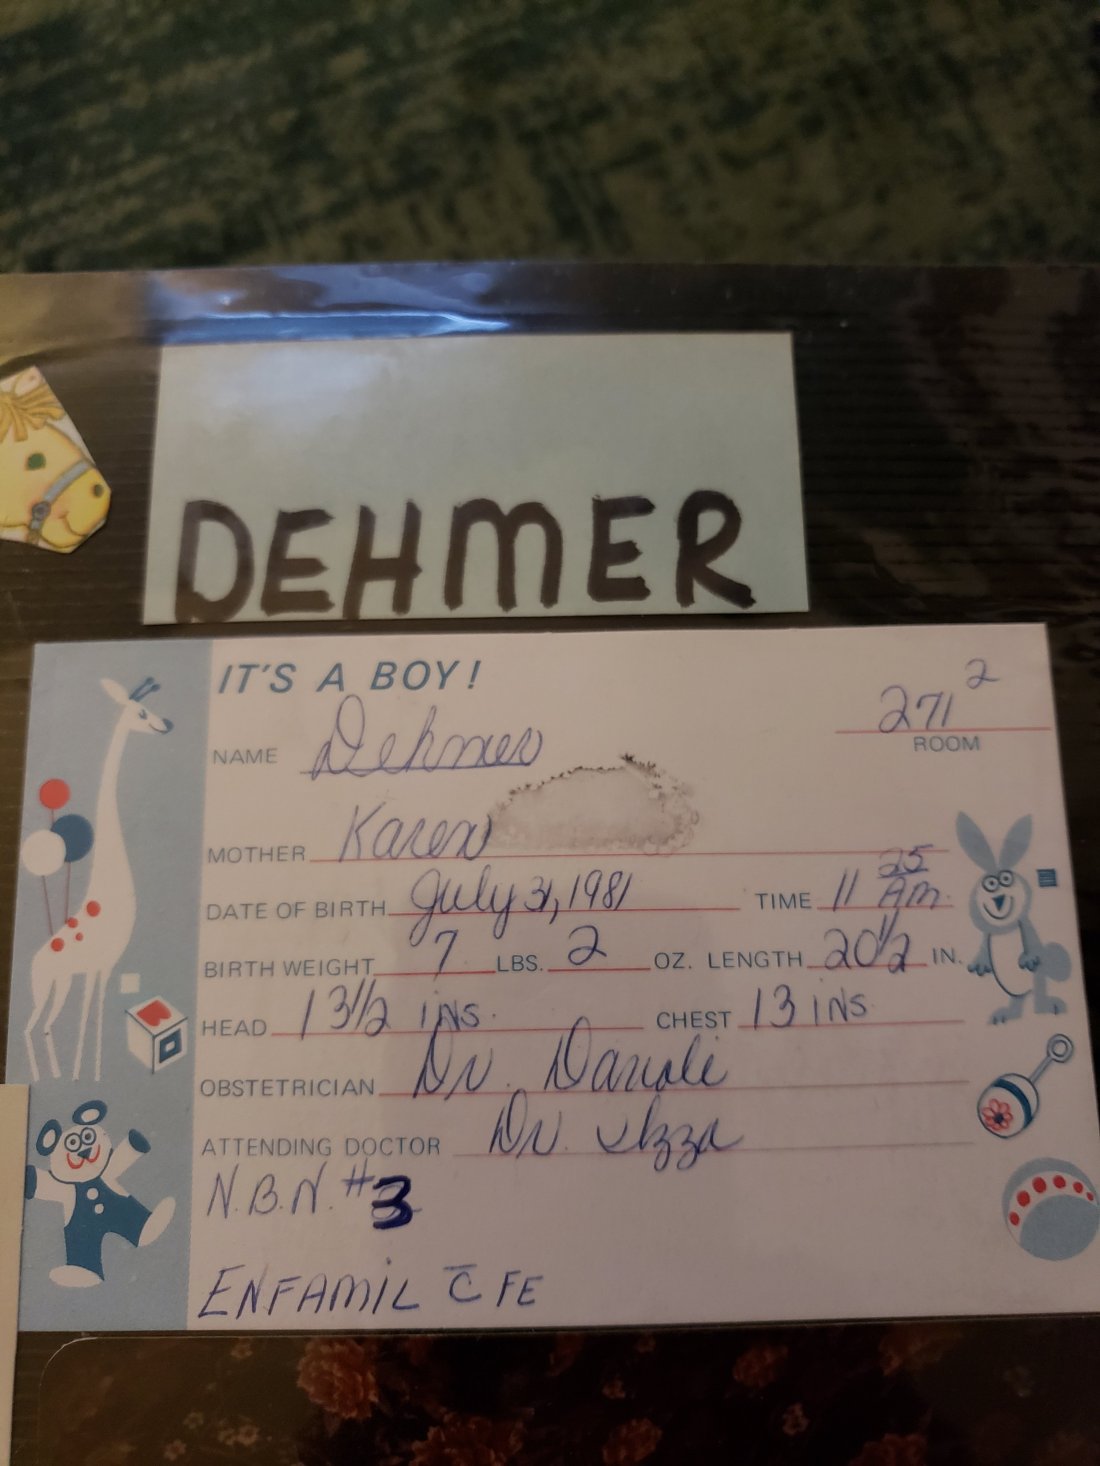 DEHMER
IT'S A BOY!
271 2
ROOM
NAME Dehmer
MOTHER Karen
DATE OF BIRTH July 31, 1981 TIME 11 25 AM.
BIRTH WEIGHT 7 LBS. 2 OZ. LENGTH 20 1/2 IN.
HEAD 13 1/2 iNS. CHEST 13 iNS.
OBSTETRICIAN Dr.
ATTENDING DOCTOR Dr. Izza
N.B.N. #3
ENFAMIL C̅ FE